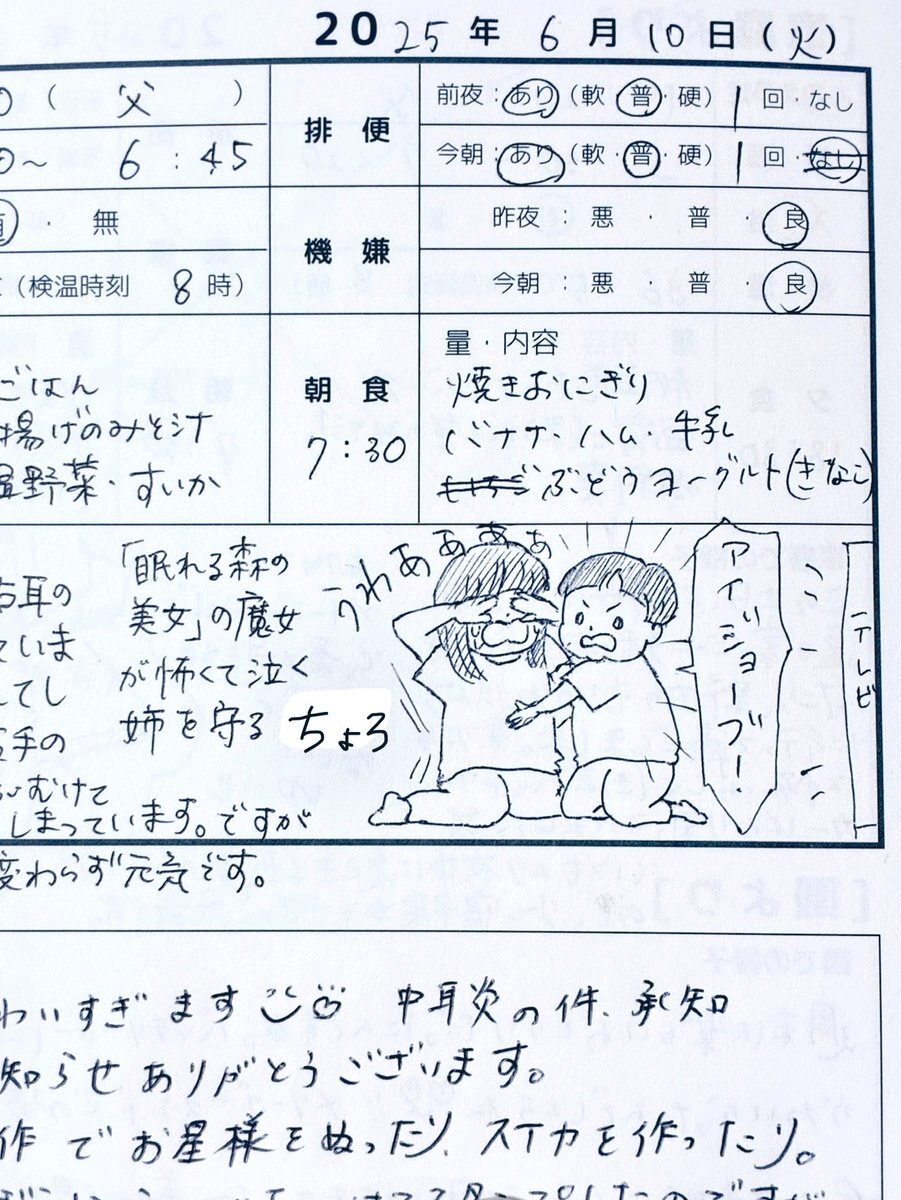 2025年 6月10日(火)
(父)
排便
前夜:あり(軟・普・硬) 1回・なし
〜 6:45
今朝:あり(軟・普・硬) 1回・なし
・無
機嫌
昨夜 悪・普・良
(検温時刻 8時)
今朝 悪・普・良
ごはん
揚げのみそ汁
温野菜・すいか
朝食
7:30
量・内容
焼きおにぎり
バナナ、ハム、牛乳
ぶどうヨーグルト(きなこ)
右耳の
ていま
してし
手の
むけて
しまっています。ですが
変わらず元気です。
「眠れる森の
美女」の魔女
が怖くて泣く
姉を守る ちょろ
うわあぁぁぁ
アイリショウブ!
テレビ
わいすぎます 中耳炎の件、承知
知らせありがとうございます。
作でお星様をぬったり、スイカを作ったり。